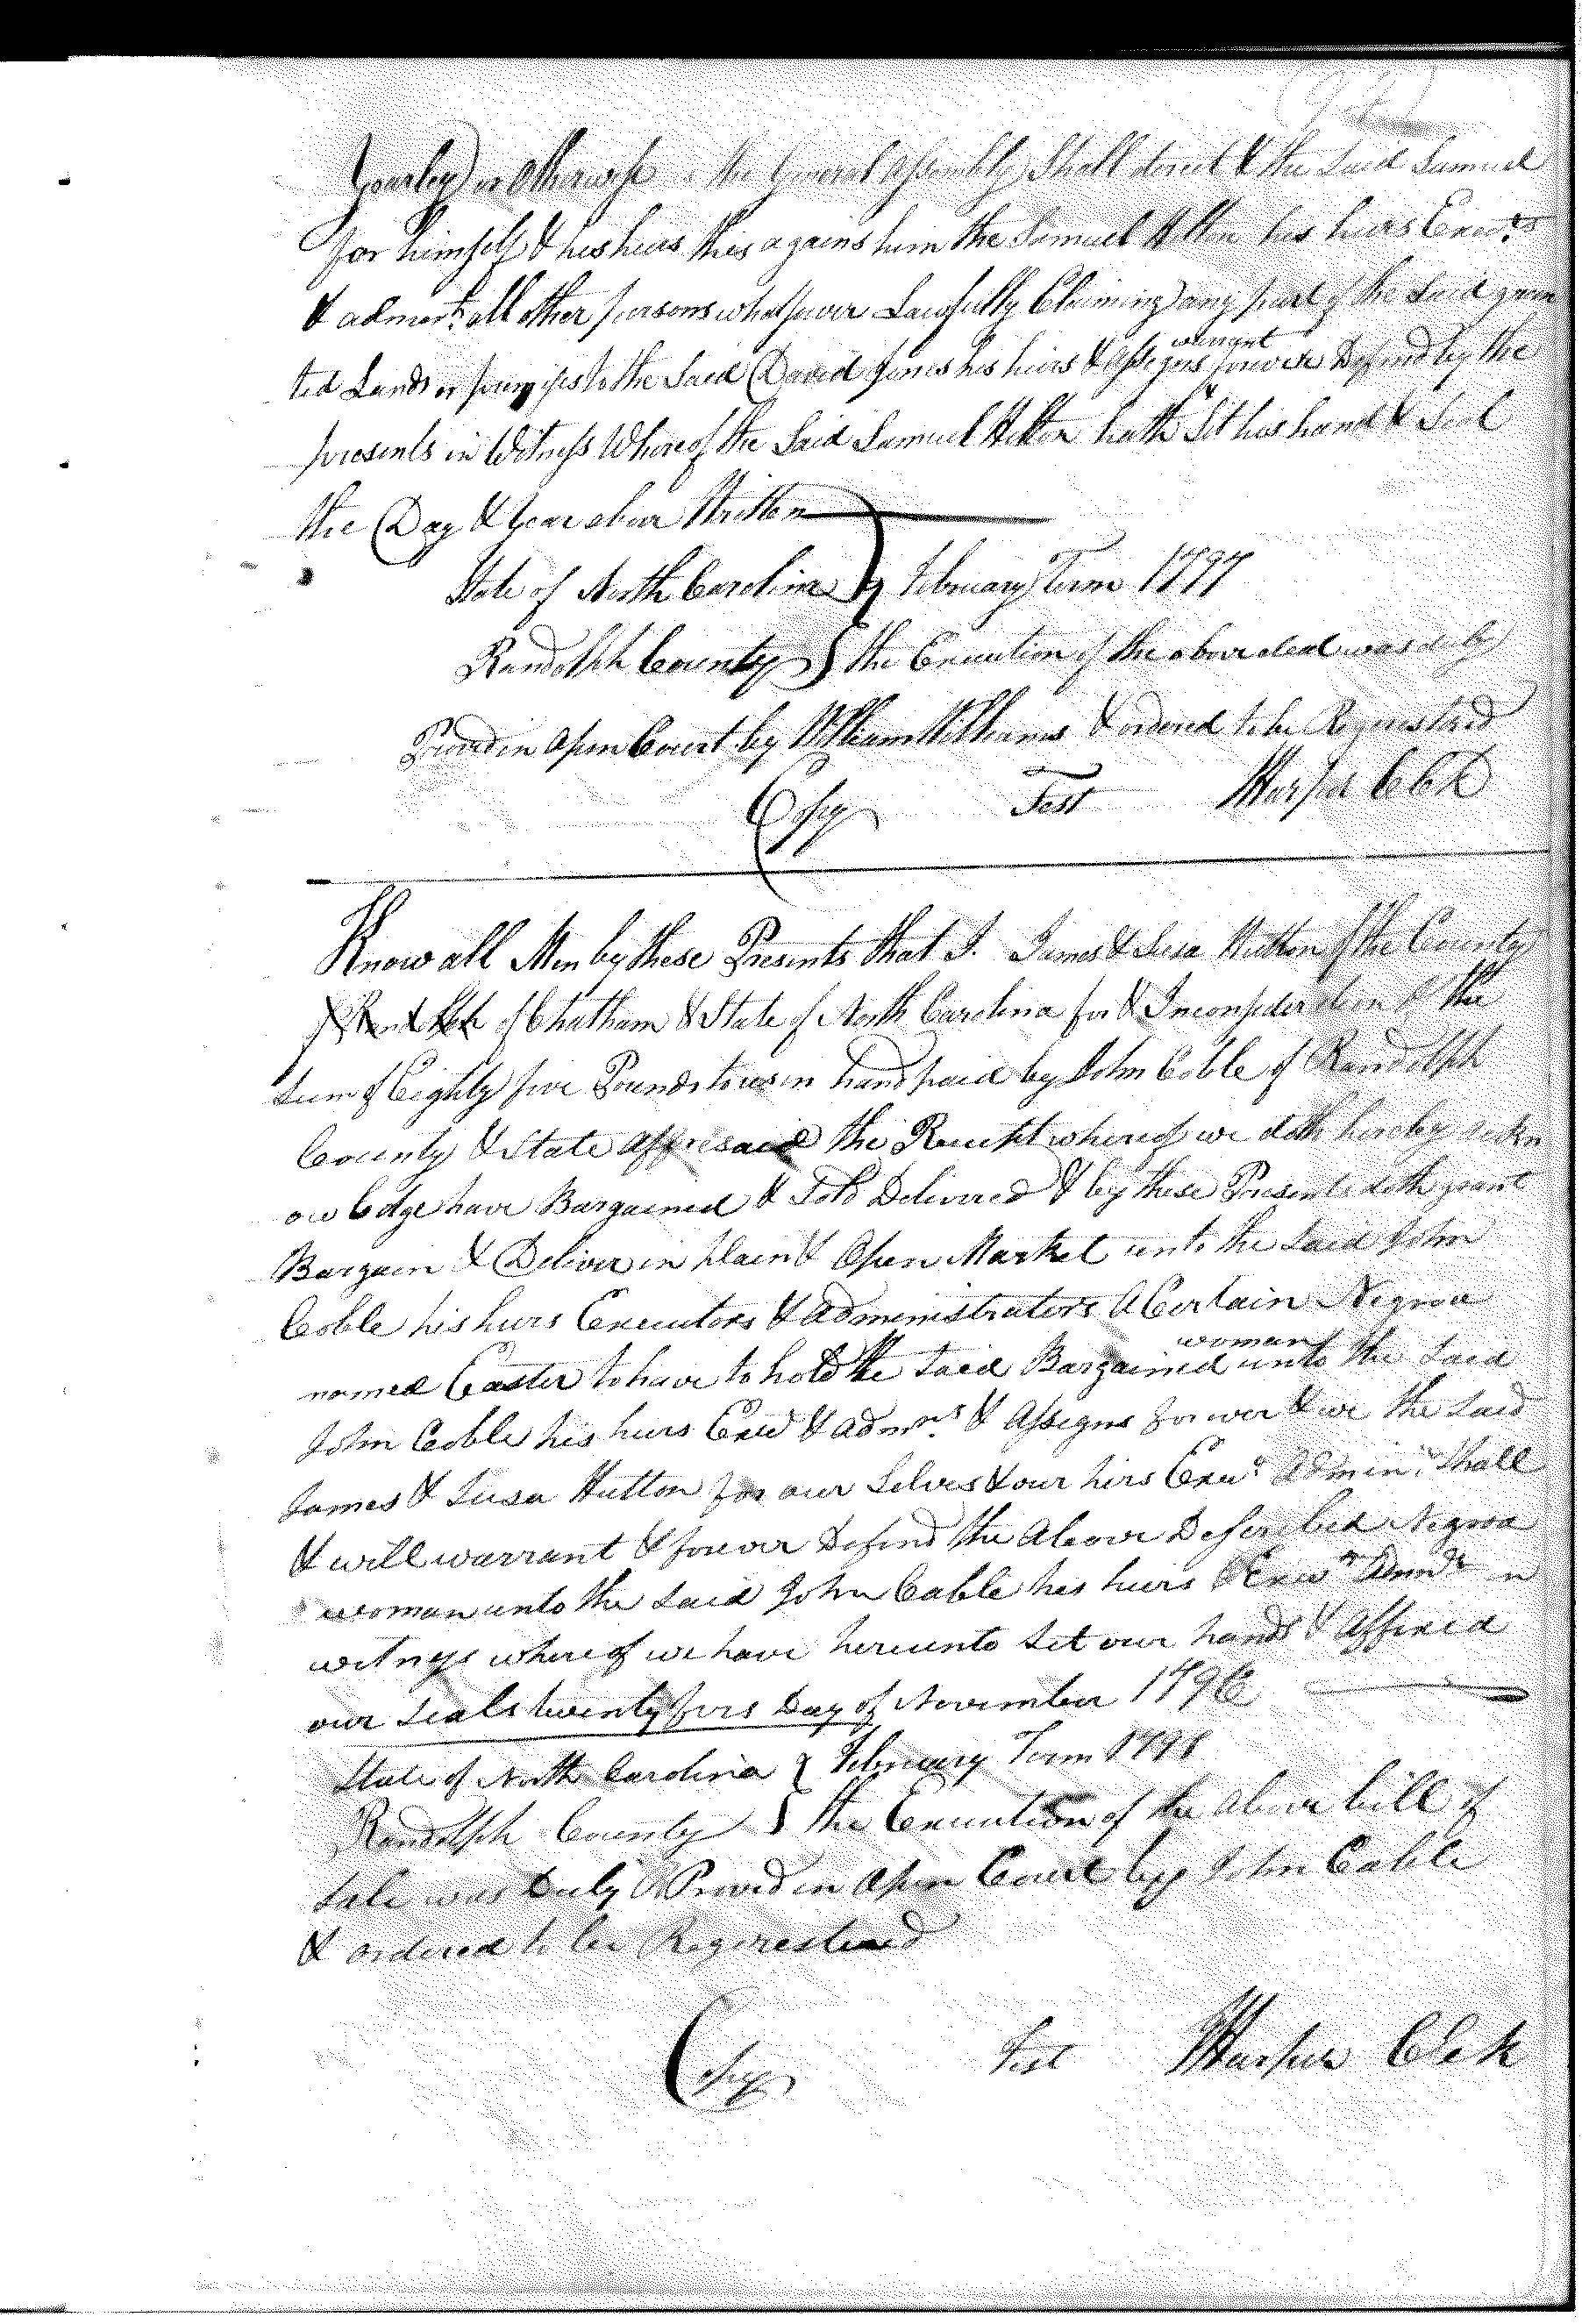 Yearley or Otherwise the General Assembly Shall direct & the Said Samuel
for himself & his heirs this agains him the Samuel his heirs Execrs
& admrs all other persons whatsoever Lawfully Claiming any part of the Said gran
ted Lands or premises to the Said David Jones his heirs & Assigns forever Defend by the
warrant
presents in Witness Whereof the Said Samuel hath Set his hand & Seal
the Day & Year above Written
State of North Carolina } February Term 1797
Randolph County } the Execution of the above deed was duly
Proved in Open Court by William Williams & ordered to be Regurestered
Copy Test Harper CCk
Know all Men by these Presents that I. James & Susa Hutton of the County
of Chatham & State of North Carolina for & Inconsideration of the
Sum of Eighty five Pounds to us in hand paid by John Coble of Randolph
County & State Afforesaid the Receipt whereof we doth hereby ackn
owledge have Bargained & Sold Delivered & by these Presents doth grant
Bargain & Deliver in plain & Open Market unto the Said John
Coble his heirs Executors & administrators A Certain Negroa
woman
named Easter to have to hold the Said Bargained unto the Said
John Coble his heirs Exed & admrs & Assigns forever & we the Said
James & Susa Hutton for our Selves & our hirs Exer admin. Shall
& will warrant & forever Defend the Above Described Negroa
woman unto the Said John Cable his heirs in
witness whereof we have hereunto Set our hands & Affixed
our Seals twenty fivs Day of November 1796
State of North Carolina } February Term 1798
Randolph County } the Execution of the above bill of
Sale was Duly Proved in Open Court by John Cable
& ordered to be Regurestered
Copy Test Harper Clk